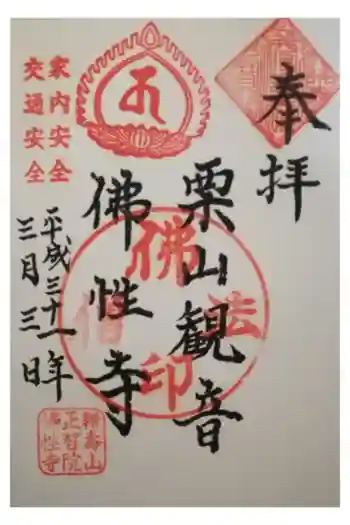 奉拝
栗山観音
佛性寺
平成三十一年
三月三日
家内安全
交通安全
佛法僧印
正智院
佛性寺